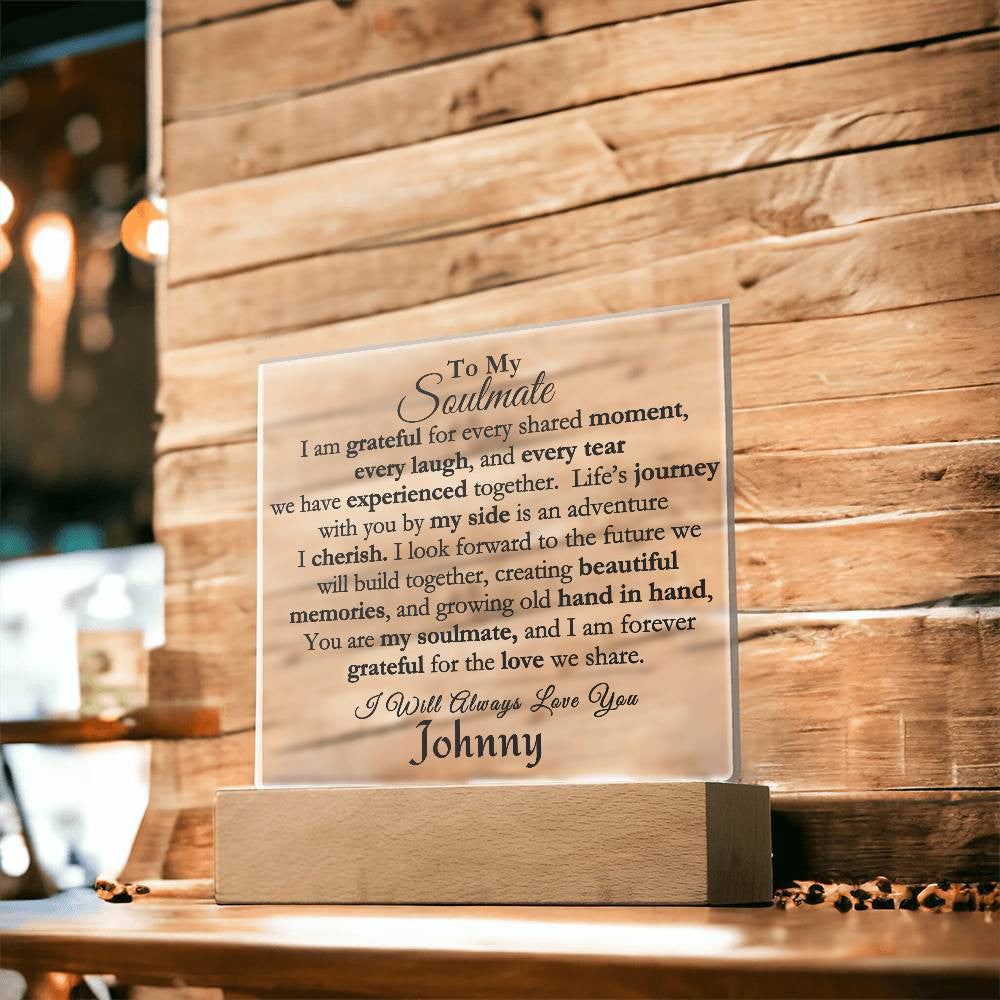 To My
Soulmate
I am grateful for every shared moment,
every laugh, and every tear
we have experienced together. Life's journey
with you by my side is an adventure
I cherish. I look forward to the future we
will build together, creating beautiful
memories, and growing old hand in hand,
You are my soulmate, and I am forever
grateful for the love we share.
I Will Always Love You
Johnny